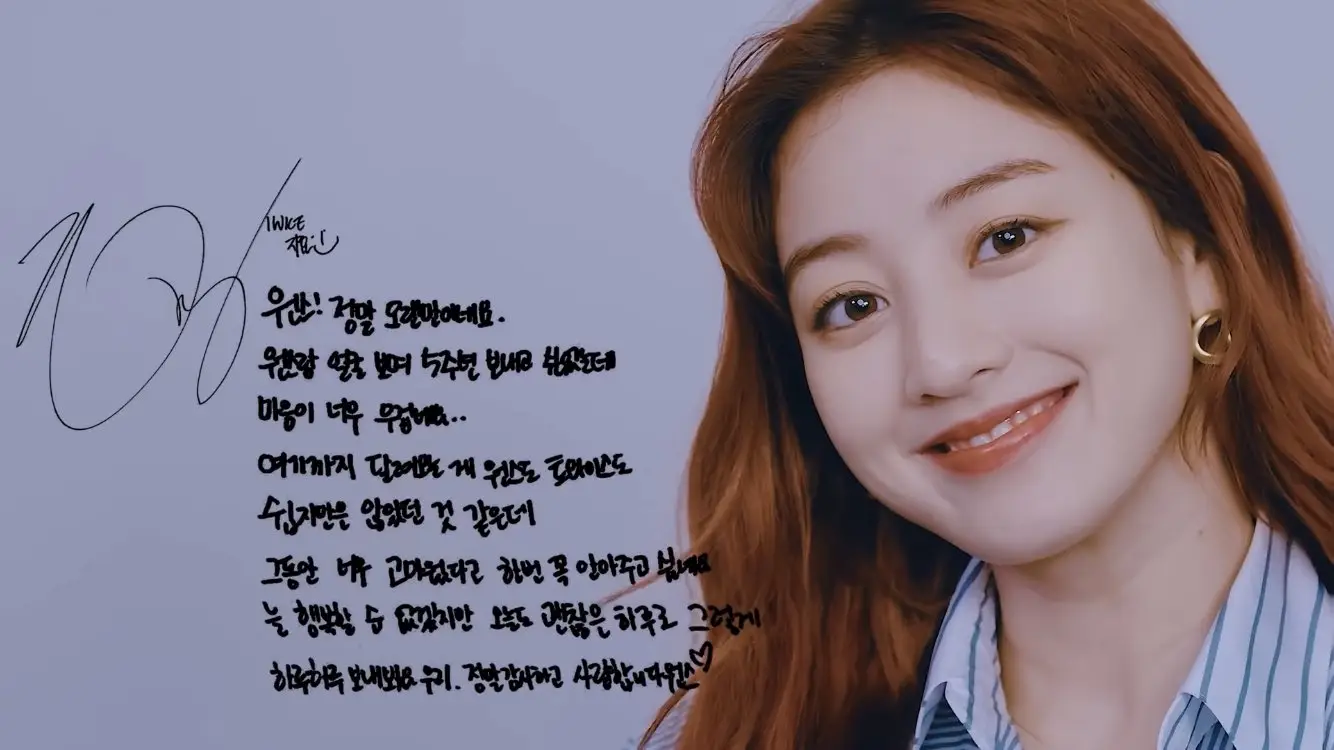 TWICE
지효
원스! 정말 오랜만이네요.
원스랑 얼굴 보며 5주년 보내고 싶었는데
마음이 너무 무겁네요..
여기까지 달려오는 게 원스도 트와이스도
쉽지만은 않았던 것 같은데
그동안 너무 고마웠다고 한번 꼭 안아주고 싶네요
늘 행복할 수 없겠지만 오늘도 괜찮은 하루로 그렇게
하루하루 보내봐요 우리. 정말 감사하고 사랑합니다 원스♡